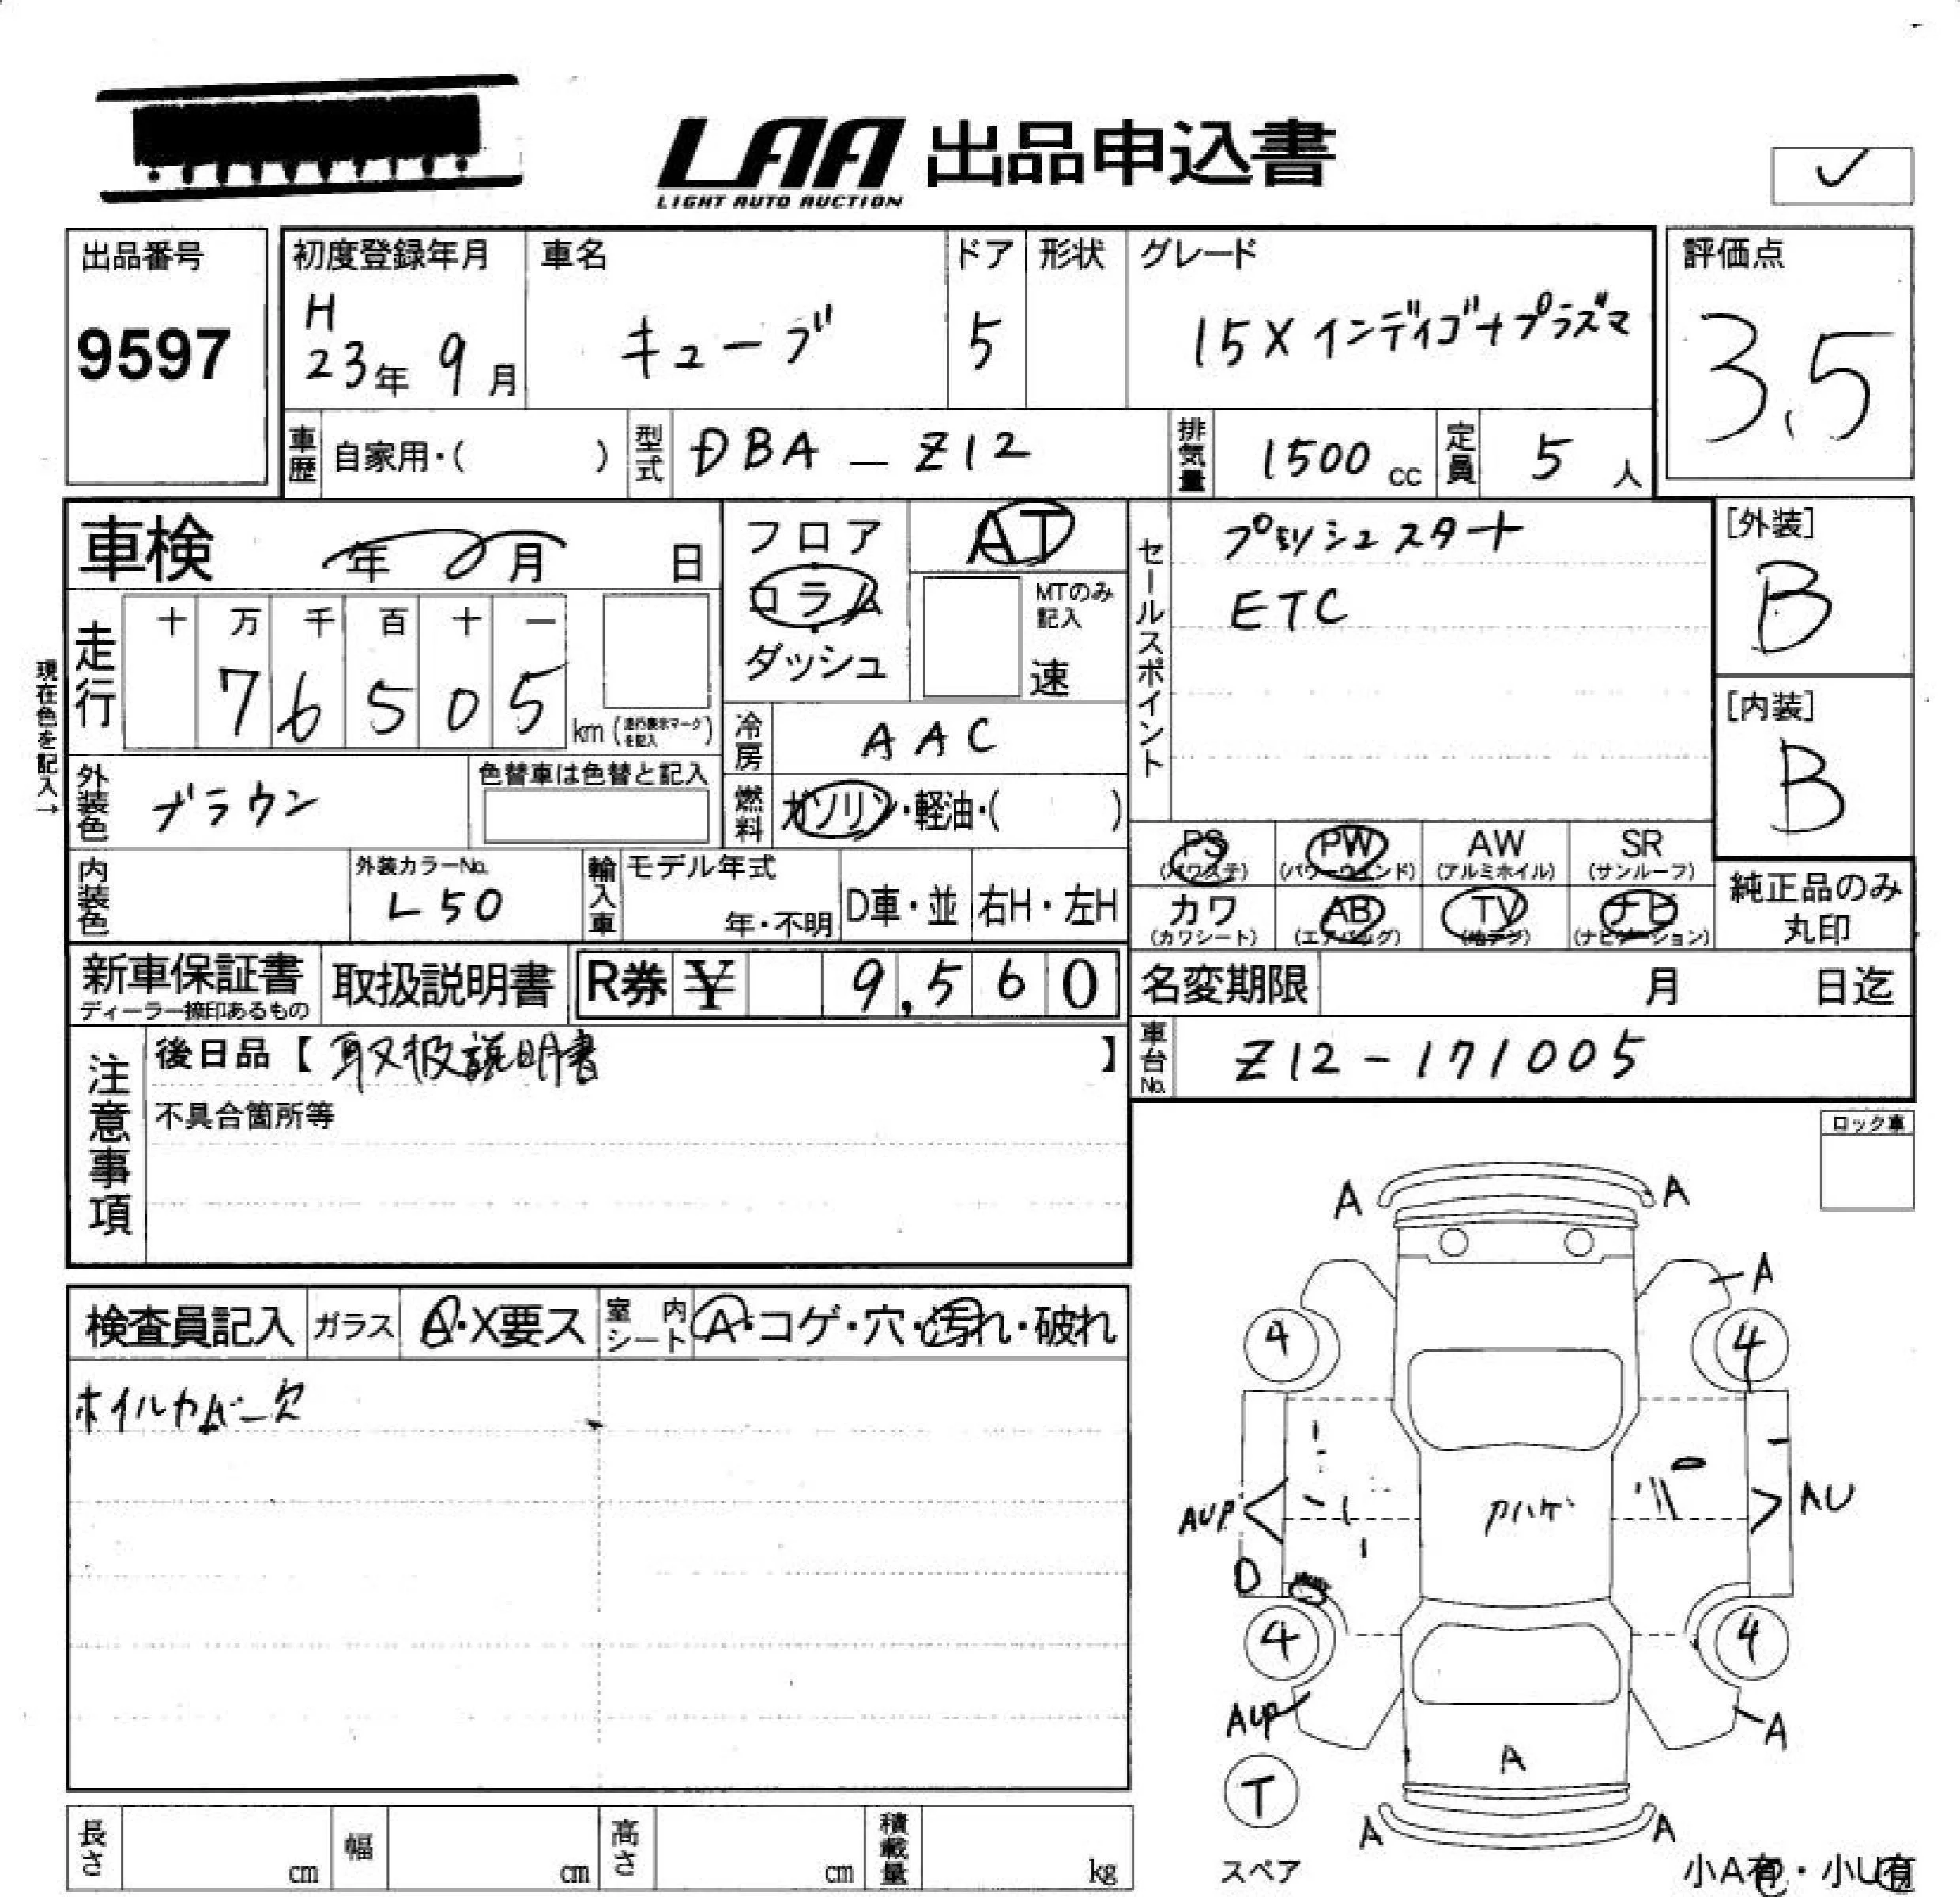 LAA 出品申込書
LIGHT AUTO AUCTION
出品番号
9597
初度登録年月
H
23年 9月
車名
キューブ
ドア
5
形状
グレード
15X インディゴ+プラズマ
評価点
3.5
車歴 自家用・( )
型式 DBA - Z12
排気量 1500 cc
定員 5 人
車検 年 月 日
フロア
コラム
ダッシュ
AT
MTのみ
記入
速
セールスポイント
プッシュスタート
ETC
[外装]
B
[内装]
B
現在色を記入→
走行
十 万 千 百 十 一
7 6 5 0 5
km (走行表示マークを記入)
冷房 AAC
外装色 ブラウン
色替車は色替と記入
燃料 ガソリン・軽油・( )
内装色
外装カラーNo.
L50
輸入車
モデル年式
年・不明
D車・並
右H・左H
PS
(パワステ)
PW
(パワーウインド)
AW
(アルミホイル)
SR
(サンルーフ)
カワ
(カワシート)
AB
(エアバッグ)
TV
(地デジ)
ナビ
(ナビゲーション)
純正品のみ
丸印
新車保証書
ディーラー捺印あるもの
取扱説明書
R券 ¥ 9,560
名変期限 月 日迄
注意事項
後日品【 取扱説明書 】
不具合箇所等
車台No. Z12-171005
ロック車
検査員記入
ガラス A・X要ス
室内シート A・コゲ・穴・汚れ・破れ
ホイルカバー欠
A A
A
4 4
AUP AU
カハゲ
D
4 4
AUP A
A
T
A A
スペア
小A有・小U有
長さ cm
幅 cm
高さ cm
積載量 kg